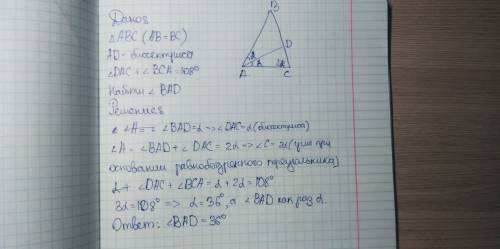 Дано:
△ABC (AB=BC)
AD- биссектриса
∠DAC + ∠BCA = 108°
Найти ∠ BAD
Решение:
∠A = ∠BAD=α => ∠DAC=α (биссектриса)
∠A - ∠BAD + ∠DAC = 2α => ∠C = 2α (угол при
основании равнобедренного треугольника)
α + ∠DAC + ∠BCA = α + 2α = 108°
3α = 108° => α = 36°, а ∠BAD как раз α.
Ответ: ∠BAD = 36°
B
D
α
α
2α
A
C